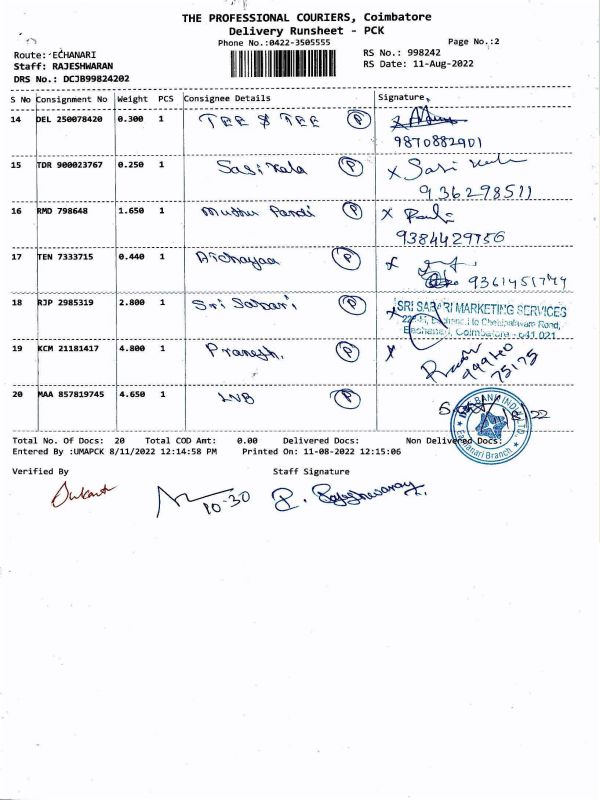 THE PROFESSIONAL COURIERS, Coimbatore
Delivery Runsheet - PCK
Phone No.:0422-3505555
Page No.:2
Route: ECHANARI
RS No.: 998242
Staff: RAJESHWARAN
RS Date: 11-Aug-2022
DRS No.: DCJB99824202
S No Consignment No Weight PCS Consignee Details Signature
14 DEL 250078420 0.300 1 TEE & TEE P
9870882901
15 TDR 900023767 0.250 1 Sasi kala P x Sasi kala
936298511
16 RMD 798648 1.650 1 Muthu Pandi P x
9384429756
17 TEN 7333715 0.440 1 P x
9361451744
18 RJP 2985319 2.800 1 Sri Sabari P SRI SABARI MARKETING SERVICES
Road,
Eachanari, Coimbatore - 641 021
19 KCM 21181417 4.800 1 Pranesh. P x
99940
75175
20 MAA 857819745 4.650 1 P
BANK
Branch
Total No. Of Docs: 20 Total COD Amt: 0.00 Delivered Docs: Non Delivered Docs:
Entered By :UMAPCK 8/11/2022 12:14:58 PM Printed On: 11-08-2022 12:15:06
Verified By Staff Signature
10-30